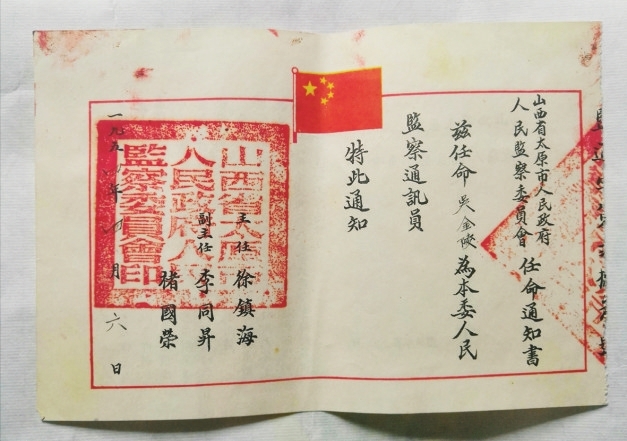 山西省太原市人民政府
人民監察委員會
任命通知書
兹任命吳金映為本委人民
監察通訊員
特此通知
主任 徐鎮海
副主任 李同昇
褚國榮
一九五 年 月六日
山西省太原市
人民政府人民
監察委員會印